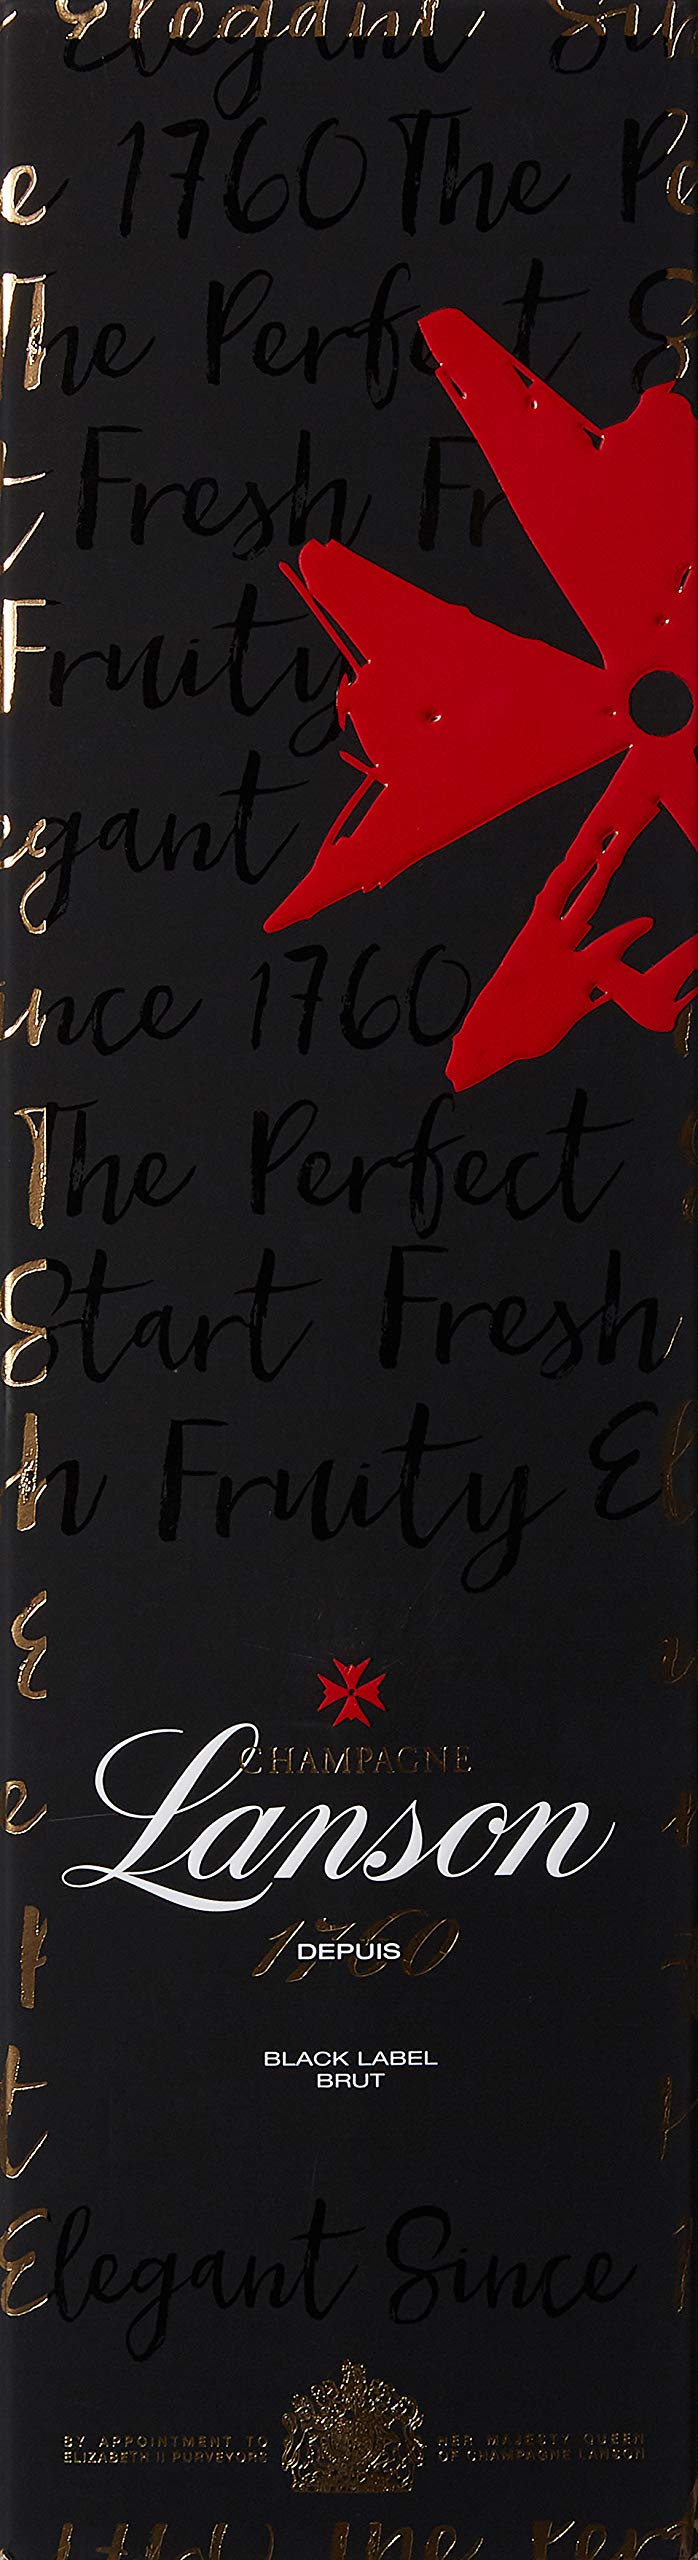 Elegant
1760 The
The Perfect
Fresh Fr
Fruity
egant
ince 1760
The Perfect
Start Fresh
h Fruity El
CHAMPAGNE
Lanson
DEPUIS 1760
BLACK LABEL
BRUT
Elegant Since 1
BY APPOINTMENT TO HER MAJESTY QUEEN
ELIZABETH II PURVEYORS OF CHAMPAGNE LANSON
The Perf